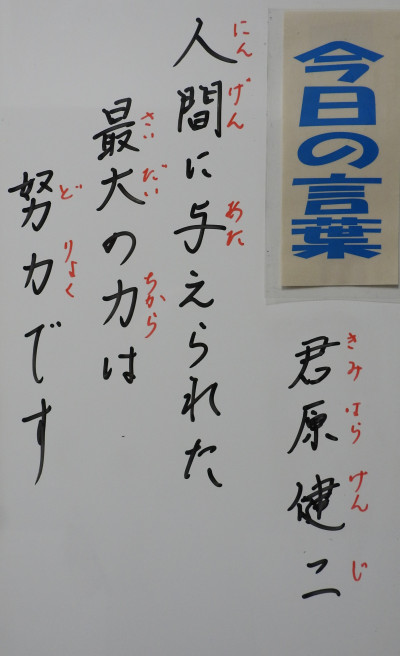 今日の言葉
君原健二
きみはらけんじ
人間に与えられた
にんげん あた
最大の力は
さいだい ちから
努力です
どりょく